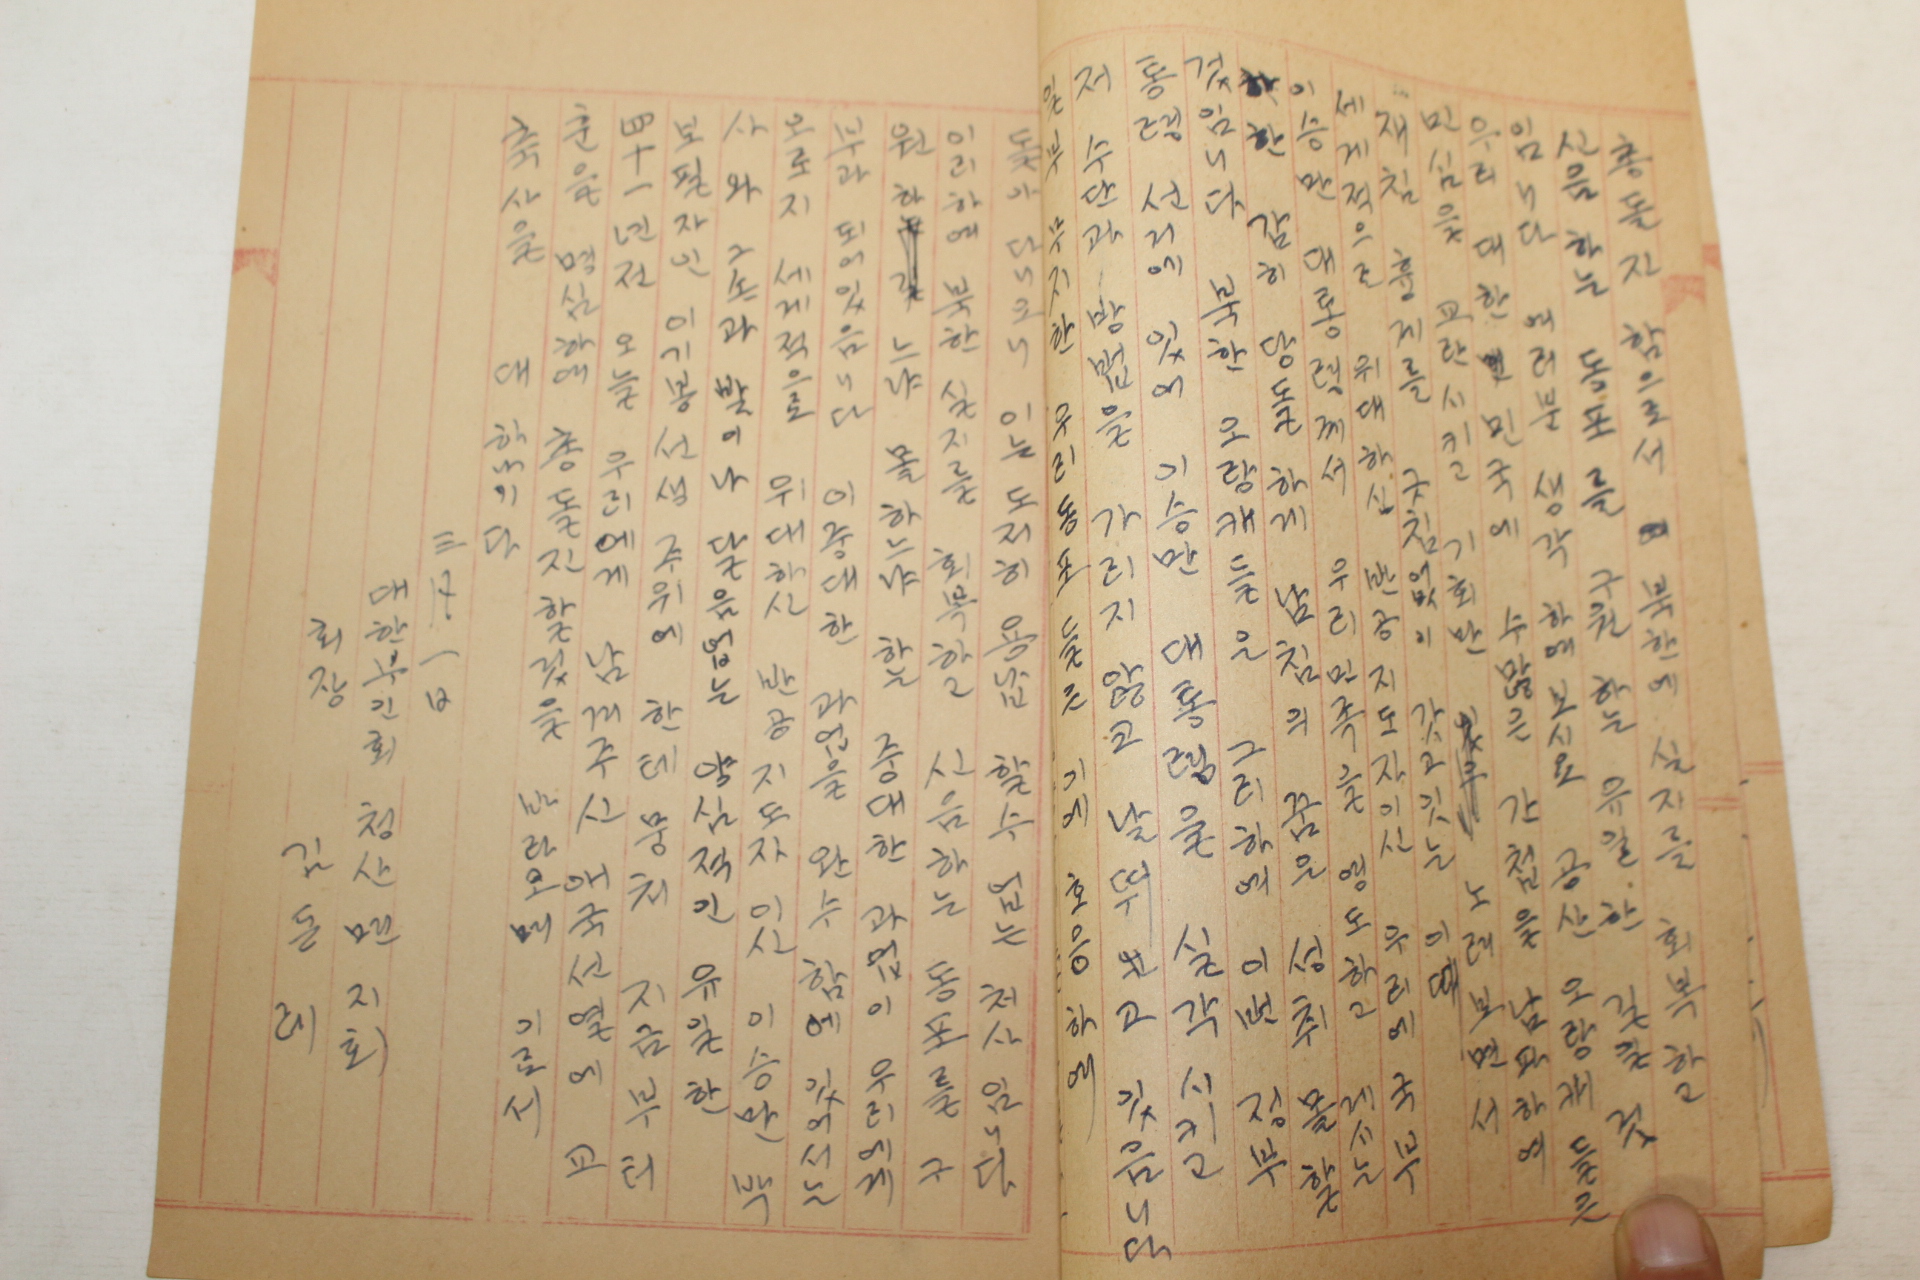 총돌진 함으로서 북한에 실지를 회복하고
신음하는 동포를 구원하는 유일한 길일 것
임니다 여러분 생각하여 보시요 공산 오랑캐들은
우리 대한민국에 수많은 간첩을 남파하여
민심을 교란시키고 기회만 노려보면서
재침 흉계를 끗침없이 갓고 잇는 이때
세계적으로 위대하신 반공지도자이신 우리에 국부
이승만 대통령께서 우리 민족을 영도하고 게시는
한 감히 당돌하게 남침의 꿈은 성취 몰할
것임니다 북한 오랑캐들은 그리하여 이번 정부
통령 선거에 있어 이승만 대통령을 실각시키고
저 수단과 방법을 가리지 않고 날뛰고 잇음니다
일부 무지한 우리 동포들은 기에 호응하여
돌아 다니크니 이는 도저히 용납할 수 없는 처사임니다
이리하여 북한 실지를 회복하고 신음하는 동포를 구
원하 느냐 몰하느냐 하는 중대한 과업이 우리에게
부과되어 있음니다 이 중대한 과업을 완수함에 있어서는
오로지 세계적으로 위대하신 반공지도자이신 이승만 박
사와 그 손과 발이나 다름없는 양심적인 유일한
보필자인 이기붕 선생 주위에 한데 뭉처 지금부터
四十一년전 오늘 우리에게 남겨주신 애국선열에 교
훈을 명심하여 총돌진할 것을 바라오며 이로서
축사을 대하나이다
三月一日
대한부인회 청산면 지회
회장
김돈례